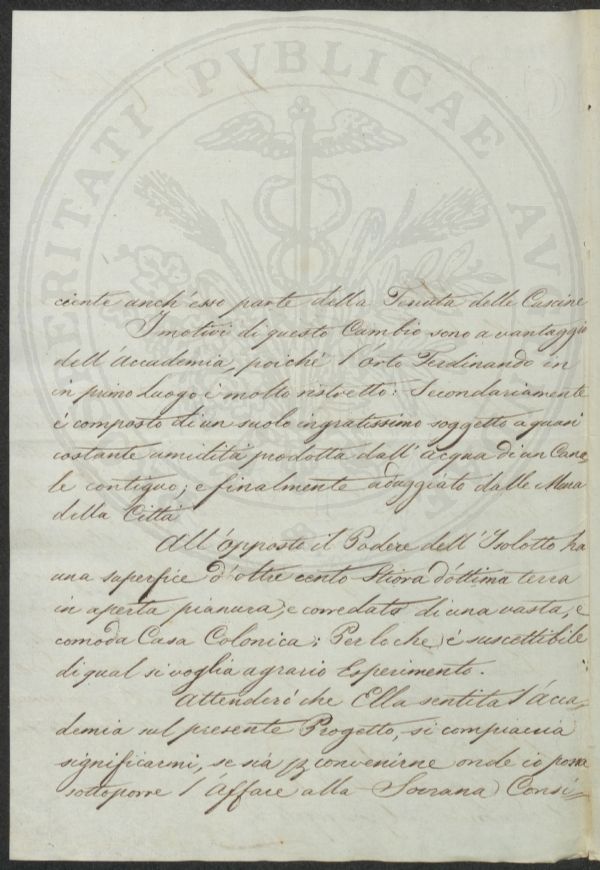 PVBLICAE
VERITATI
ciente anch'esso parte della Tenuta delle Cascine
I motivi di questo Cambio sono a vantaggio
dell'Accademia, poiché l'Orto Ferdinando in
in primo luogo è molto ristretto: Secondariamente
è composto di un suolo ingratissimo soggetto a quasi
costante umidità prodotta dall'acqua di un Cana,
le contiguo; e finalmente aduggiato dalle Mura
della Città
All'opposto il Podere dell'Isolotto ha
una superfice d'oltre cento Stiora d'ottima terra
in aperta pianura, e corredato di una vasta, e
comoda Casa Colonica; Perloché è suscettibile
di qual si voglia agrario Esperimento.
Attenderò che Ella sentita l'Acca,
demia sul presente Progetto, si compiacerà
significarmi, se sia p convenirne onde io possa
sottoporre l'Affare alla Sovrana Consi=